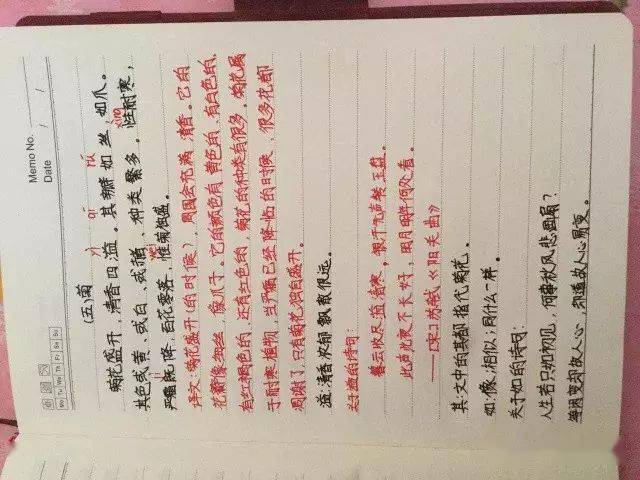 Memo No.
Date / /
Mo Tu We Th Fr Sa Su
(五)菊
yì qí rú
菊花盛开，清香四溢。其瓣如丝，如爪。
xìng
其色或黄、或白、或赭、或红，种类繁多。性耐寒，
jì wéi
严霜既降，百花零落，惟菊独盛。
译文：菊花盛开(的时候)，周围会充满清香。它的
花瓣像细丝，像爪子。它的颜色有黄色的、有白色的、
有红褐色的，还有红色的，菊花的种类有很多。菊花属
于耐寒植物，当严霜已经降临的时候，很多花都
凋谢了，只有菊花独自盛开。
溢：清香浓郁飘散很远。
关于溢的诗句：
暮云收尽溢清寒，银汉无声转玉盘。
此生此夜不长好，明月明年何处看。
——[宋]苏轼《阳关曲》
其：文中的其都指代菊花。
如：像，相似，同什么一样。
关于如的诗句：
人生若只如初见，何事秋风悲画扇？
等闲变却故人心，却道故人心易变。